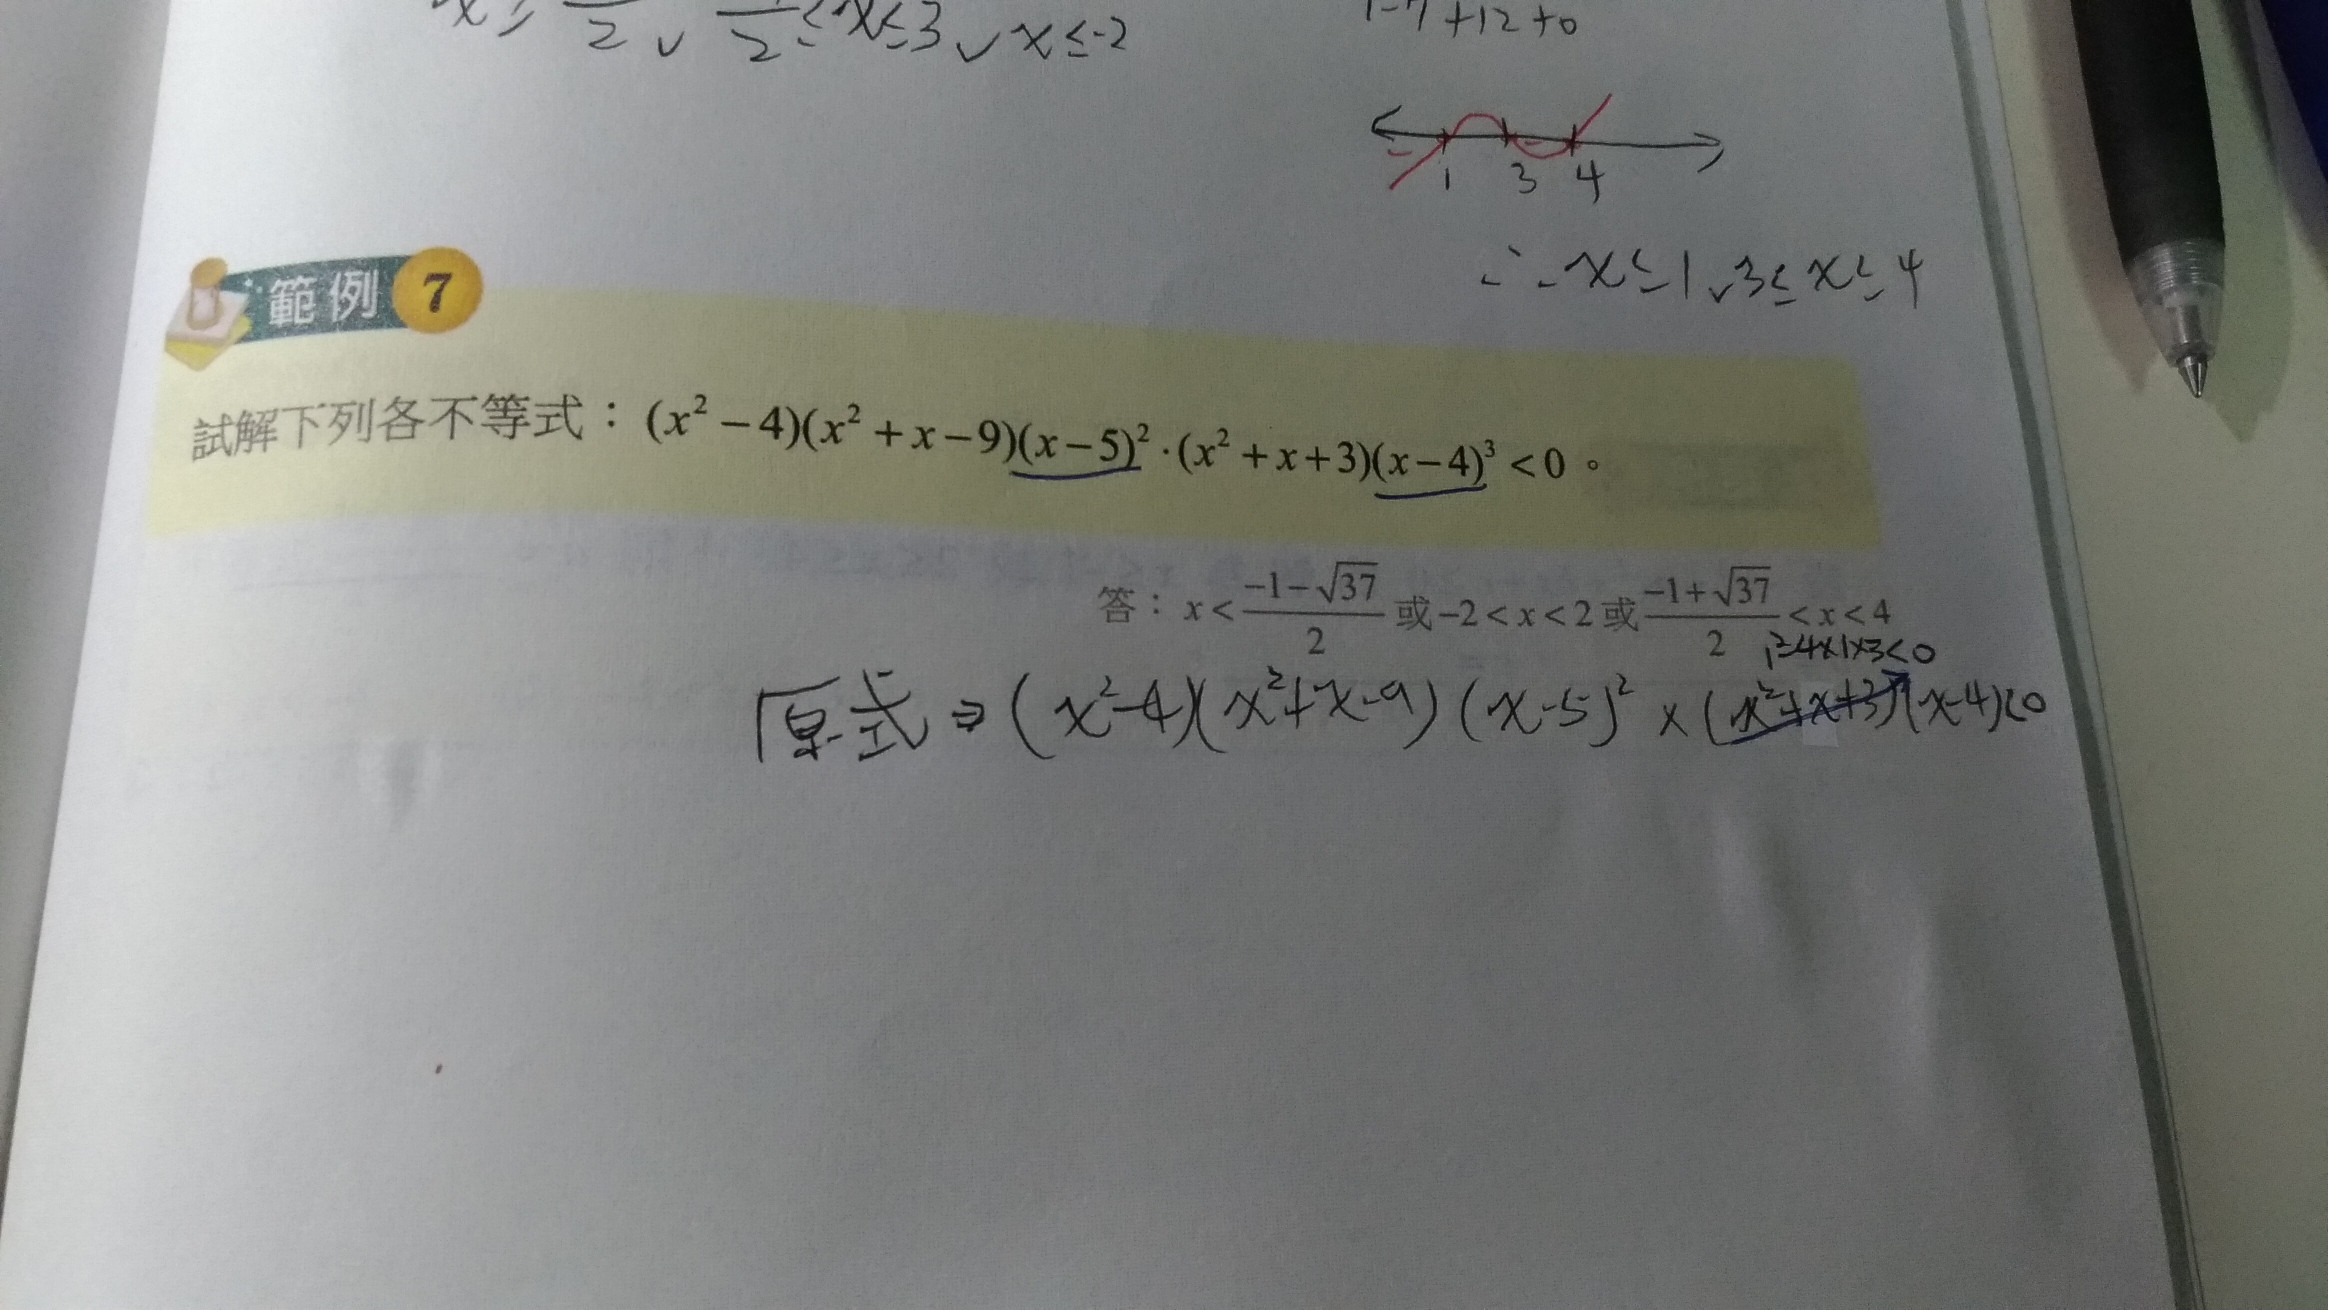 x ≥ 2 ∨ 2 ≤ x ≤ 3 ∨ x ≤ -2
1-7+12+0
1 3 4
∴ x ≤ 1 ∨ 3 ≤ x ≤ 4
範例 7
試解下列各不等式：(x² − 4)(x² + x − 9)(x − 5)² · (x² + x + 3)(x − 4)³ < 0。
答：x < (−1−√37)/2 或 −2 < x < 2 或 (−1+√37)/2 < x < 4
1²-4×1×3<0
原式 ⇒ (x²-4)(x²+x-9)(x-5)² × (x²+x+3)(x-4)<0